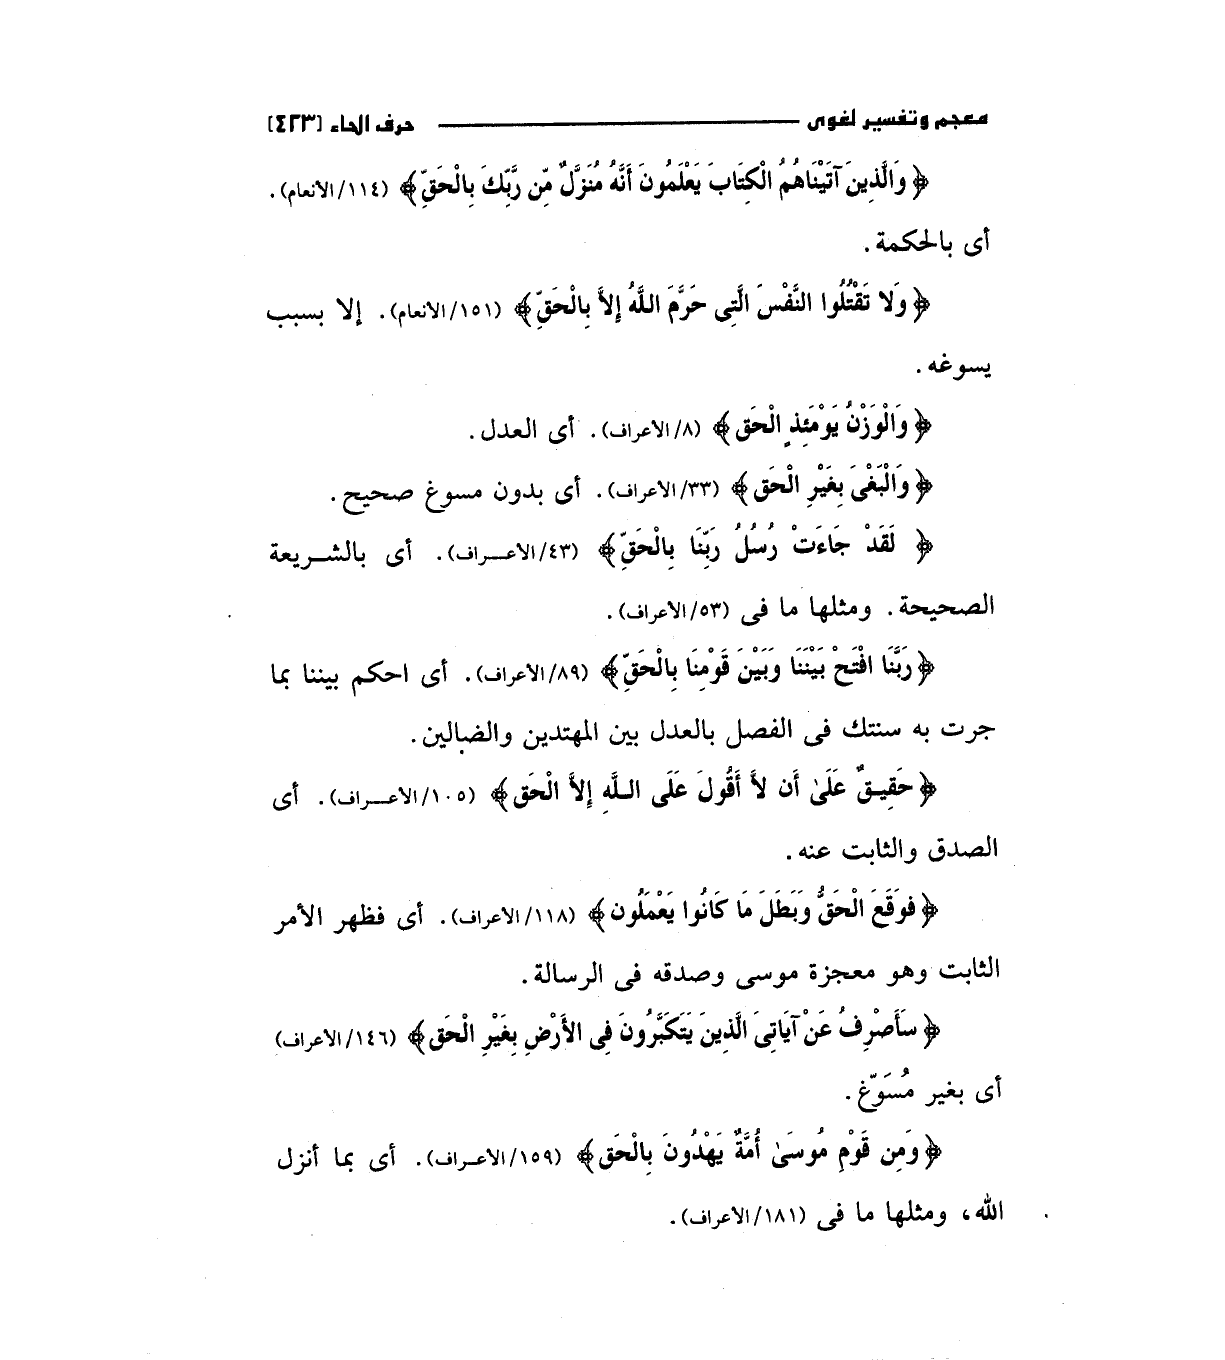 معجم وتفسير لغوى حرف الحاء [٤٢٣]
﴿وَالَّذِينَ آتَيْنَاهُمُ الْكِتَابَ يَعْلَمُونَ أَنَّهُ مُنَزَّلٌ مِّن رَّبِّكَ بِالْحَقِّ﴾ (١١٤/الأنعام).
أى بالحكمة.
﴿وَلا تَقْتُلُوا النَّفْسَ الَّتِى حَرَّمَ اللَّهُ إِلاَّ بِالْحَقِّ﴾ (١٥١/الأنعام). إلا بسبب
يسوغه.
﴿وَالْوَزْنُ يَوْمَئِذٍ الْحَق﴾ (٨/الأعراف). أى العدل.
﴿وَالْبَغْىَ بِغَيْرِ الْحَق﴾ (٣٣/الأعراف). أى بدون مسوغ صحيح.
﴿لَقَدْ جَاءَتْ رُسُلُ رَبِّنَا بِالْحَقِّ﴾ (٤٣/الأعـراف). أى بالشـريعة
الصحيحة. ومثلها ما فى (٥٣/الأعراف).
﴿رَبَّنَا افْتَحْ بَيْنَنَا وَبَيْنَ قَوْمِنَا بِالْحَقِّ﴾ (٨٩/الأعراف). أى احكم بيننا بما
جرت به سنتك فى الفصل بالعدل بين المهتدين والضالين.
﴿حَقِيـقٌ عَلَىٰ أَن لاَّ أَقُولَ عَلَى اللَّهِ إِلاَّ الْحَق﴾ (١٠٥/الأعـراف). أى
الصدق والثابت عنه.
﴿فوَقَعَ الْحَقُّ وَبَطَلَ مَا كَانُوا يَعْمَلُون﴾ (١١٨/الأعراف). أى فظهر الأمر
الثابت وهو معجزة موسى وصدقه فى الرسالة.
﴿سَأَصْرِفُ عَنْ آيَاتِىَ الَّذِينَ يَتَكَبَّرُونَ فِى الأَرْضِ بِغَيْرِ الْحَق﴾ (١٤٦/الأعراف)
أى بغير مُسَوّغ.
﴿وَمِن قَوْمِ مُوسَىٰ أُمَّةٌ يَهْدُونَ بِالْحَق﴾ (١٥٩/الأعـراف). أى بما أنزل
الله، ومثلها ما فى (١٨١/الأعراف).